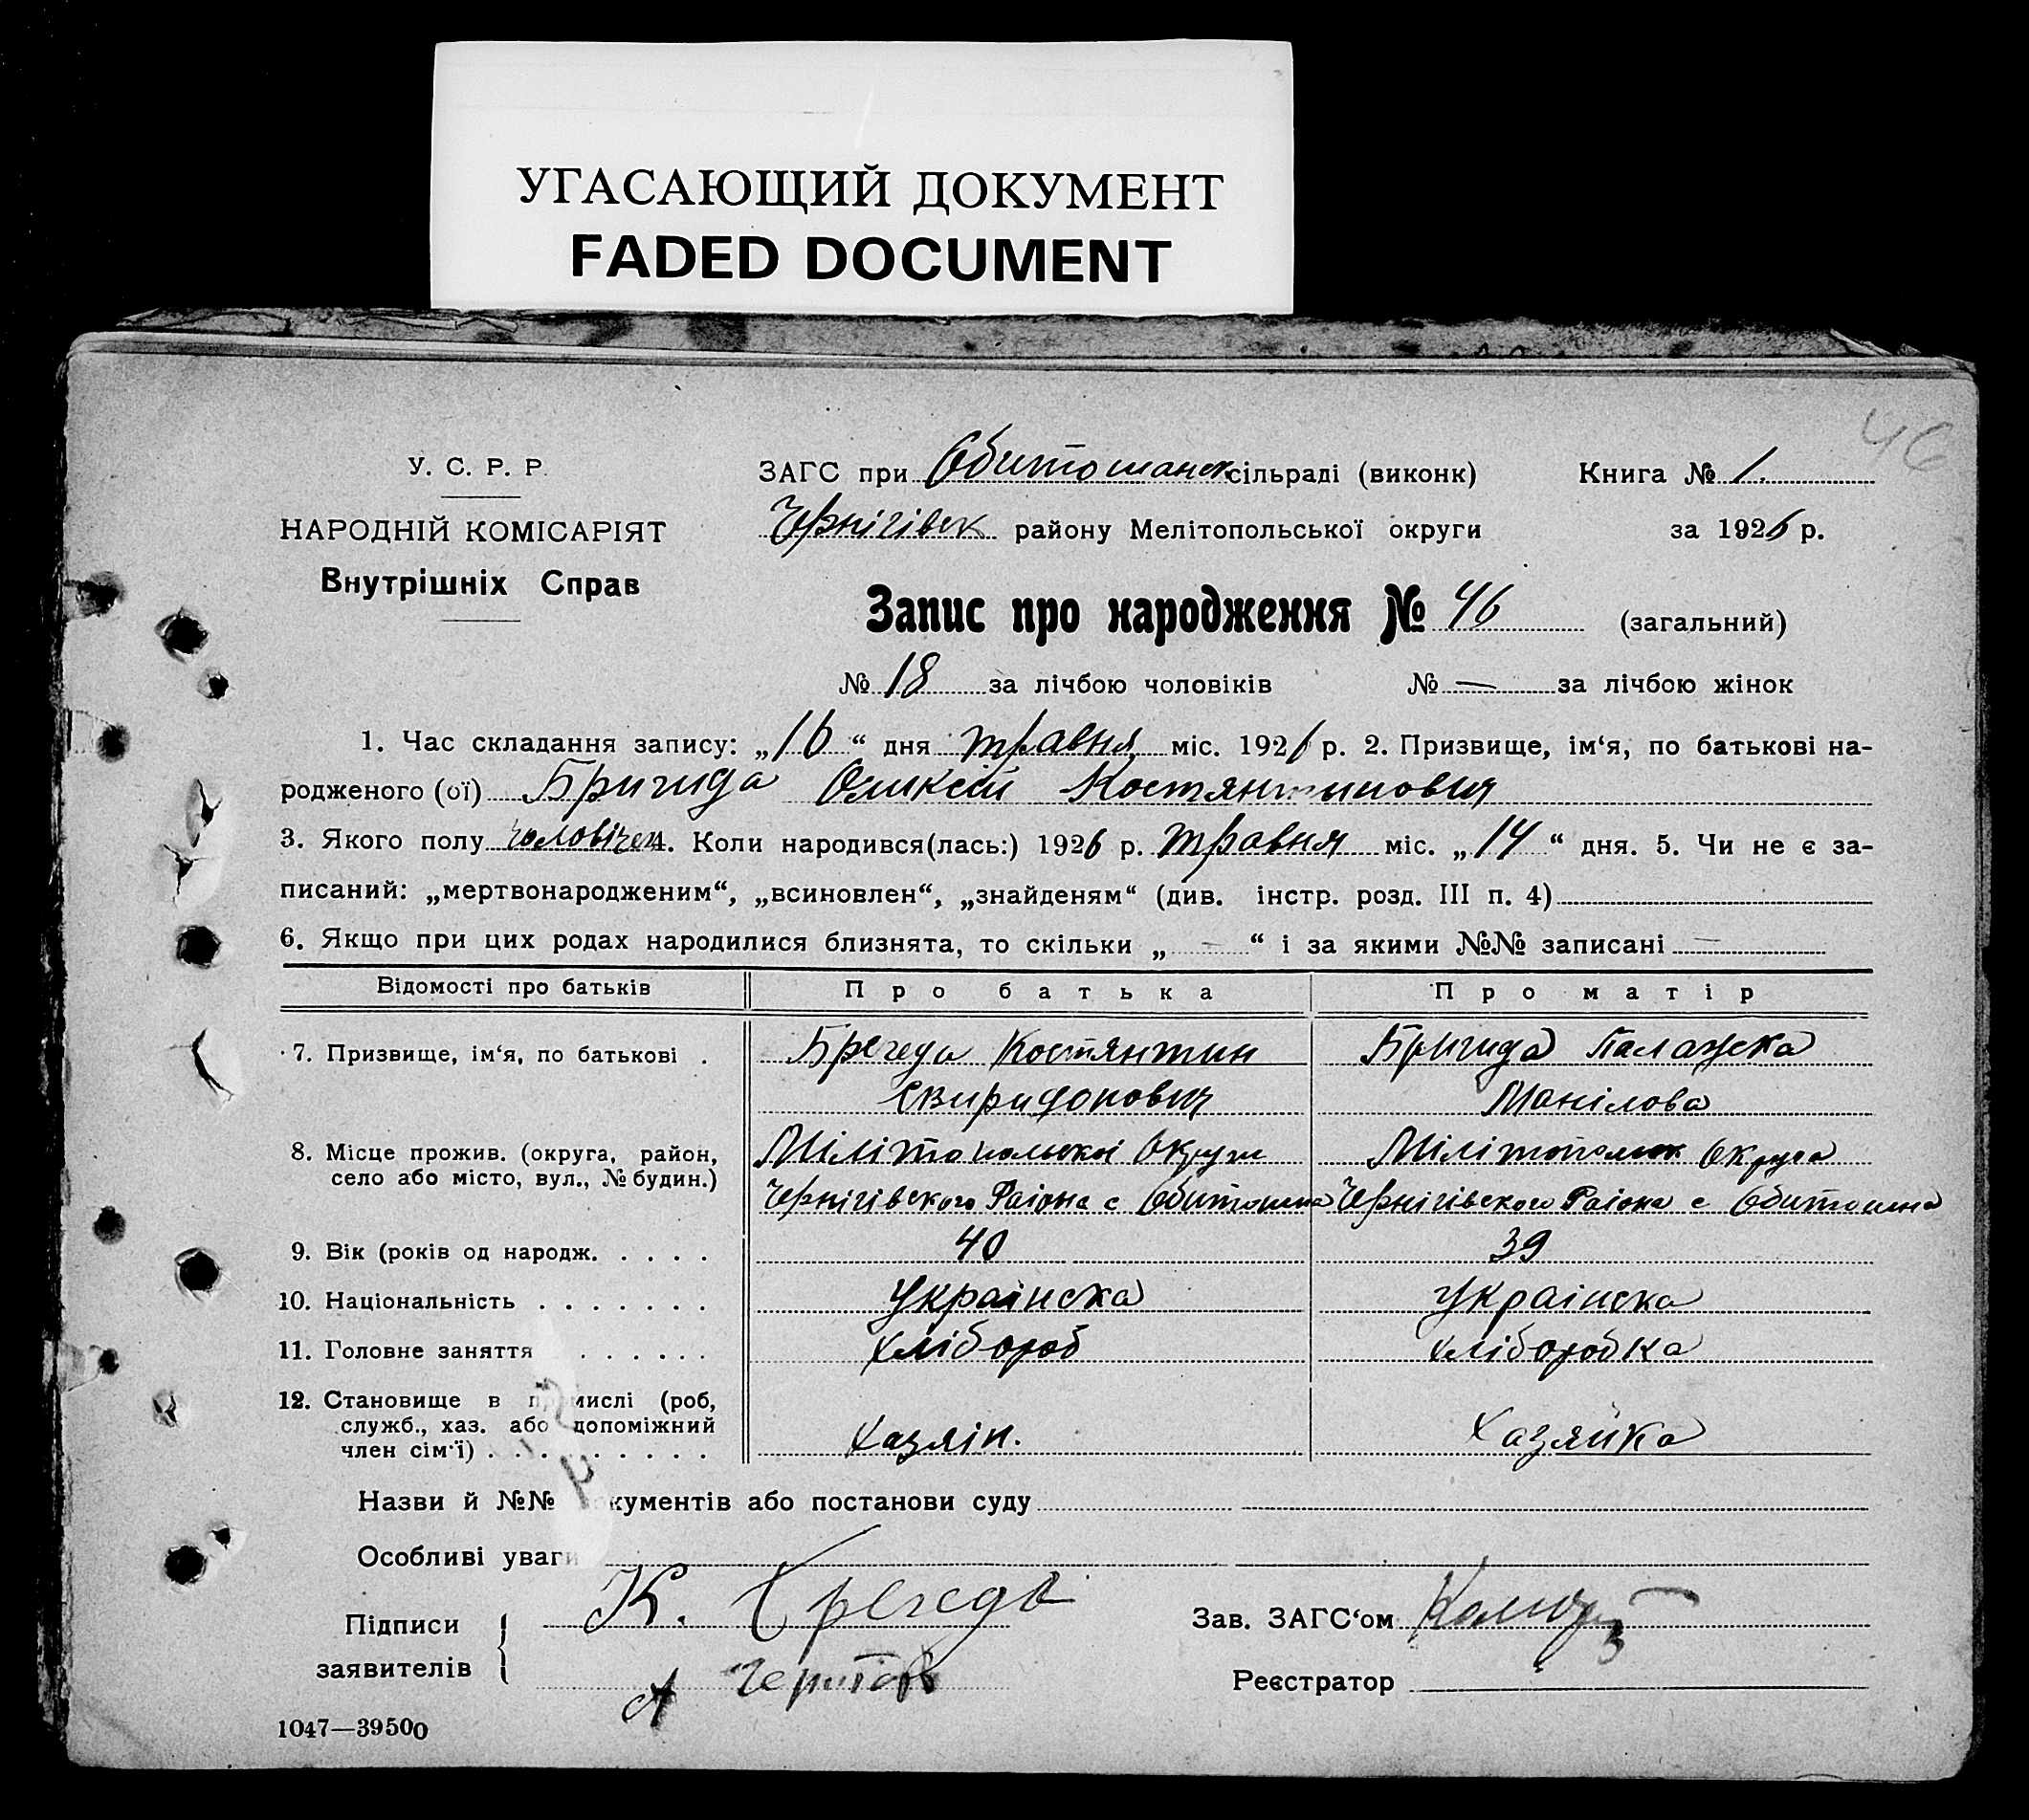 УГАСАЮЩИЙ ДОКУМЕНТ
FADED DOCUMENT
46
У. С. Р. Р.
НАРОДНІЙ КОМІСАРІЯТ
Внутрішніх Справ
ЗАГС при Обитошанск сільраді (виконк)
Чернігівск району Мелітопольської округи
Книга № 1.
за 1926 р.
Запис про народження № 46 (загальний)
№ 18 за лічбою чоловіків № — за лічбою жінок
1. Час складання запису: „16“ дня травня міс. 1926 р. 2. Призвище, ім‘я, по батькові на-
родженого (ої) Бригида Оликсій Костянтинович
3. Якого полу чоловічеи 4. Коли народився(лась:) 1926 р. травня міс. „14“ дня. 5. Чи не є за-
писаний: „мертвонародженим“, „всиновлен“, „знайденям“ (див. інстр. розд. III п. 4)
6. Якщо при цих родах народилися близнята, то скільки „ — “ і за якими №№ записані —
Відомості про батьків Про батька Про матір
7. Призвище, ім‘я, по батькові . Брегеда Костянтин Бригида Палажка
Свиридонович Манілова
8. Місце прожив. (округа, район, Мілітопольскоі Округи Мілітопольск Округа
село або місто, вул., № будин.) Чернігівского Раіона с Обитошна Чернігівского Раіона с Обитошна
9. Вік (років од народж. . . . . 40 39
10. Національність . . . . . . . Українска Українска
11. Головне заняття . . . . . . Хлібороб Хліборобка
12. Становище в промислі (роб,
служб., хаз. або допоміжний
член сім‘ї) . . . . . . . . . Хазяін. Хазяйка
Назви й №№ документів або постанови суду
Особливі уваги
Підписи
заявителів
К. Брегеда
А
Зав. ЗАГС‘ом
Реєстратор
1047—39500